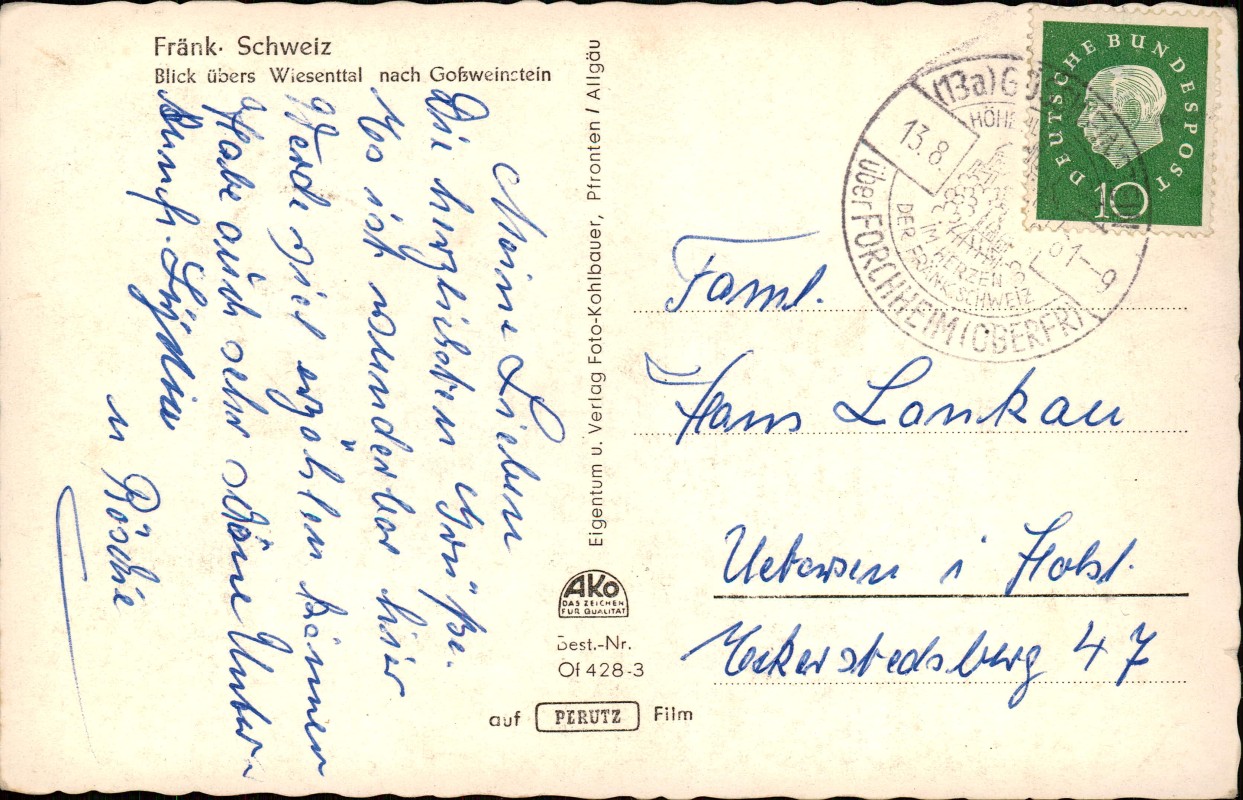 Fränk. Schweiz
Blick übers Wiesenttal nach Goßweinstein
Meine Lieben
Die herzlichsten Grüße.
Es ist wunderbar hier
Werde viel erzählen können
Habe auch sehr schöne Unter-
kunft.
u Röschie
Eigentum u. Verlag Foto-Kohlbauer, Pfronten / Allgäu
AKO
DAS ZEICHEN
FÜR QUALITÄT
Best.-Nr.
Of 428-3
auf PERUTZ Film
DEUTSCHE BUNDESPOST
10
(13a)
HÖHE
13.8
61-9
IM HERZEN
DER FRÄNK. SCHWEIZ
über FORCHHEIM (OBERFR)
Faml.
Hans Lankau
Uetersen i Holst.
47